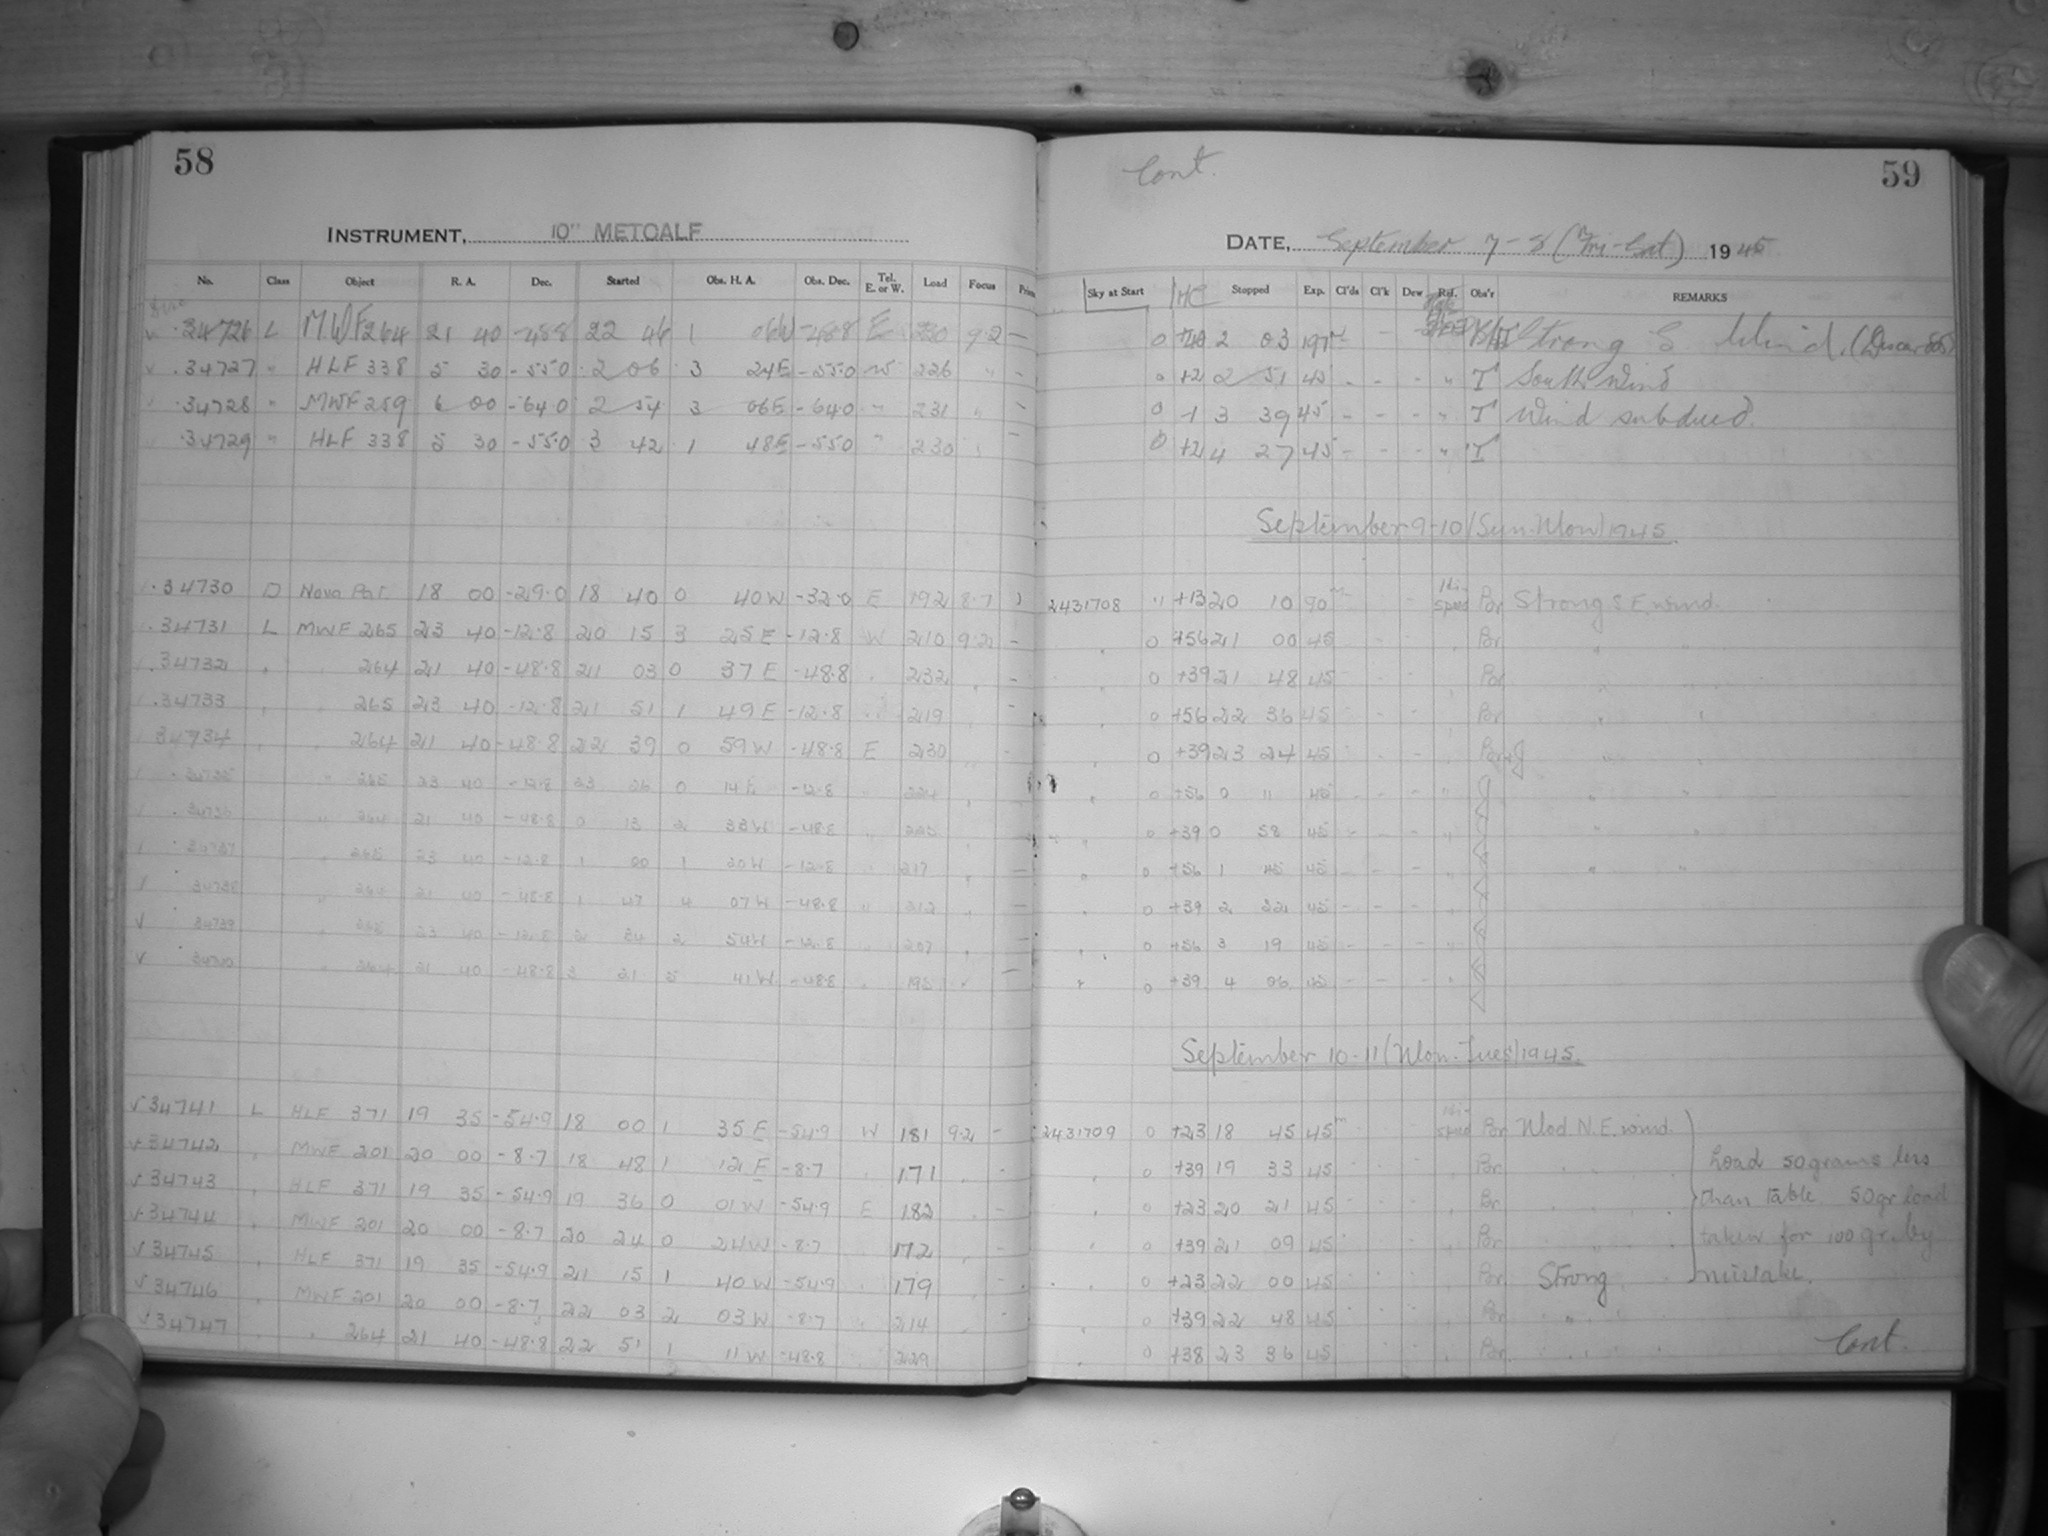 58
INSTRUMENT, 10" METCALF
No. Class Object R. A. Dec. Started Obs. H. A. Obs. Dec. Tel. E. or W. Load Focus
34726 L MWF 264 21 40 -48.8 22 46 1 06W -48.8 E 230 9.2 —
.34727 " HLF 338 5 30 -55.0 2 06 3 24E -55.0 W 226 " -
.34728 " MWF 259 6 00 -64.0 2 54 3 06E -64.0 " 231 " -
.34729 " HLF 338 5 30 -55.0 3 42 1 48E -55.0 " 230 -
.34730 D Nova 18 00 -29.0 18 40 0 40W -32.0 E 192 8.7
.34731 L MWF 265 23 40 -12.8 20 15 3 25E -12.8 W 210 9.2 -
.34732 264 21 40 -48.8 21 03 0 37E -48.8 232 -
.34733 265 23 40 -12.8 21 51 1 49E -12.8 219 -
34734 264 21 40 -48.8 22 39 0 59W -48.8 E 230 -
34735 " 265 23 40 -12.8 23 26 0 14E -12.8 224
34736 " 264 21 40 -48.8 0 13 2 33W -48.8 -
34737 " 265 23 40 -12.8 1 00 1 20W -12.8 217 -
√ 34738 " 264 21 40 -48.8 1 47 4 07W -48.8 " 212 -
√ 34739 265 23 40 -12.8 2 34 2 54W -12.8 207 -
√ 34740 264 21 40 -48.8 3 21 5 41W -48.8 -
√ 34741 L HLF 371 19 35 -54.9 18 00 1 35E -54.9 W 181 9.2 -
√ 34742 MWF 201 20 00 -8.7 18 48 1 12E -8.7 171 -
√ 34743 HLF 371 19 35 -54.9 19 36 0 01W -54.9 E 182 -
√ 34744 MWF 201 20 00 -8.7 20 24 0 24W -8.7 172 -
√ 34745 HLF 371 19 35 -54.9 21 15 1 40W -54.9 179 -
√ 34746 MWF 201 20 00 -8.7 22 03 2 03W -8.7 214 -
√ 34747 264 21 40 -48.8 22 51 1 11W -48.8 229
Cont.
59
DATE, September 7-8 (Fri-Sat) 1945
Sky at Start Stopped Exp. Cl'ds Cl'k Dew Rel. Obs'r REMARKS
0 2 03 197 - Strong S Wind.
0 +2 2 51 45 - - " T South Wind
0 -1 3 39 45 - - - " T Wind subdued.
0 +2 4 27 45 - - - " T
September 9-10 (Sun-Mon) 1945.
2431708 +13 20 10 90 Hi-speed Por Strong S.E. wind.
0 +56 21 00 45 Por
0 +39 21 48 45 Por
0 +56 22 36 45 Por
0 +39 23 24 45 Por
0 +56 0 11 45 - - - " "
0 +39 0 58 45 - - - " "
0 +56 1 45 45 - - - " "
0 +39 2 45 - - -
0 +56 3 19 45 - - -
0 +39 4 06 45 - - -
September 10-11 (Mon-Tues) 1945.
2431709 0 +23 18 45 45 Hi-speed Por Mod N.E. wind.
0 +39 19 33 45 Por Load 50 grams less
0 +23 20 21 45 Por than table. 50 gr. load
0 +39 21 09 45 Por taken for 100 gr. by
0 +23 22 00 45 Por Strong mistake.
0 +39 22 48 45 Por
0 +38 23 36 45 Por
Cont.